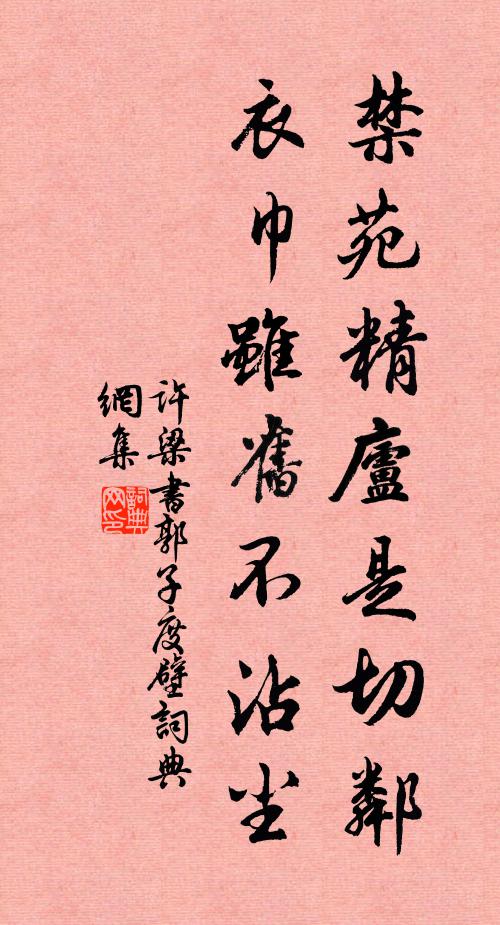 禁苑精廬是切鄰
衣巾雖舊不沾尘
许梁書郭子度壁詞典
網集
詞典
网印